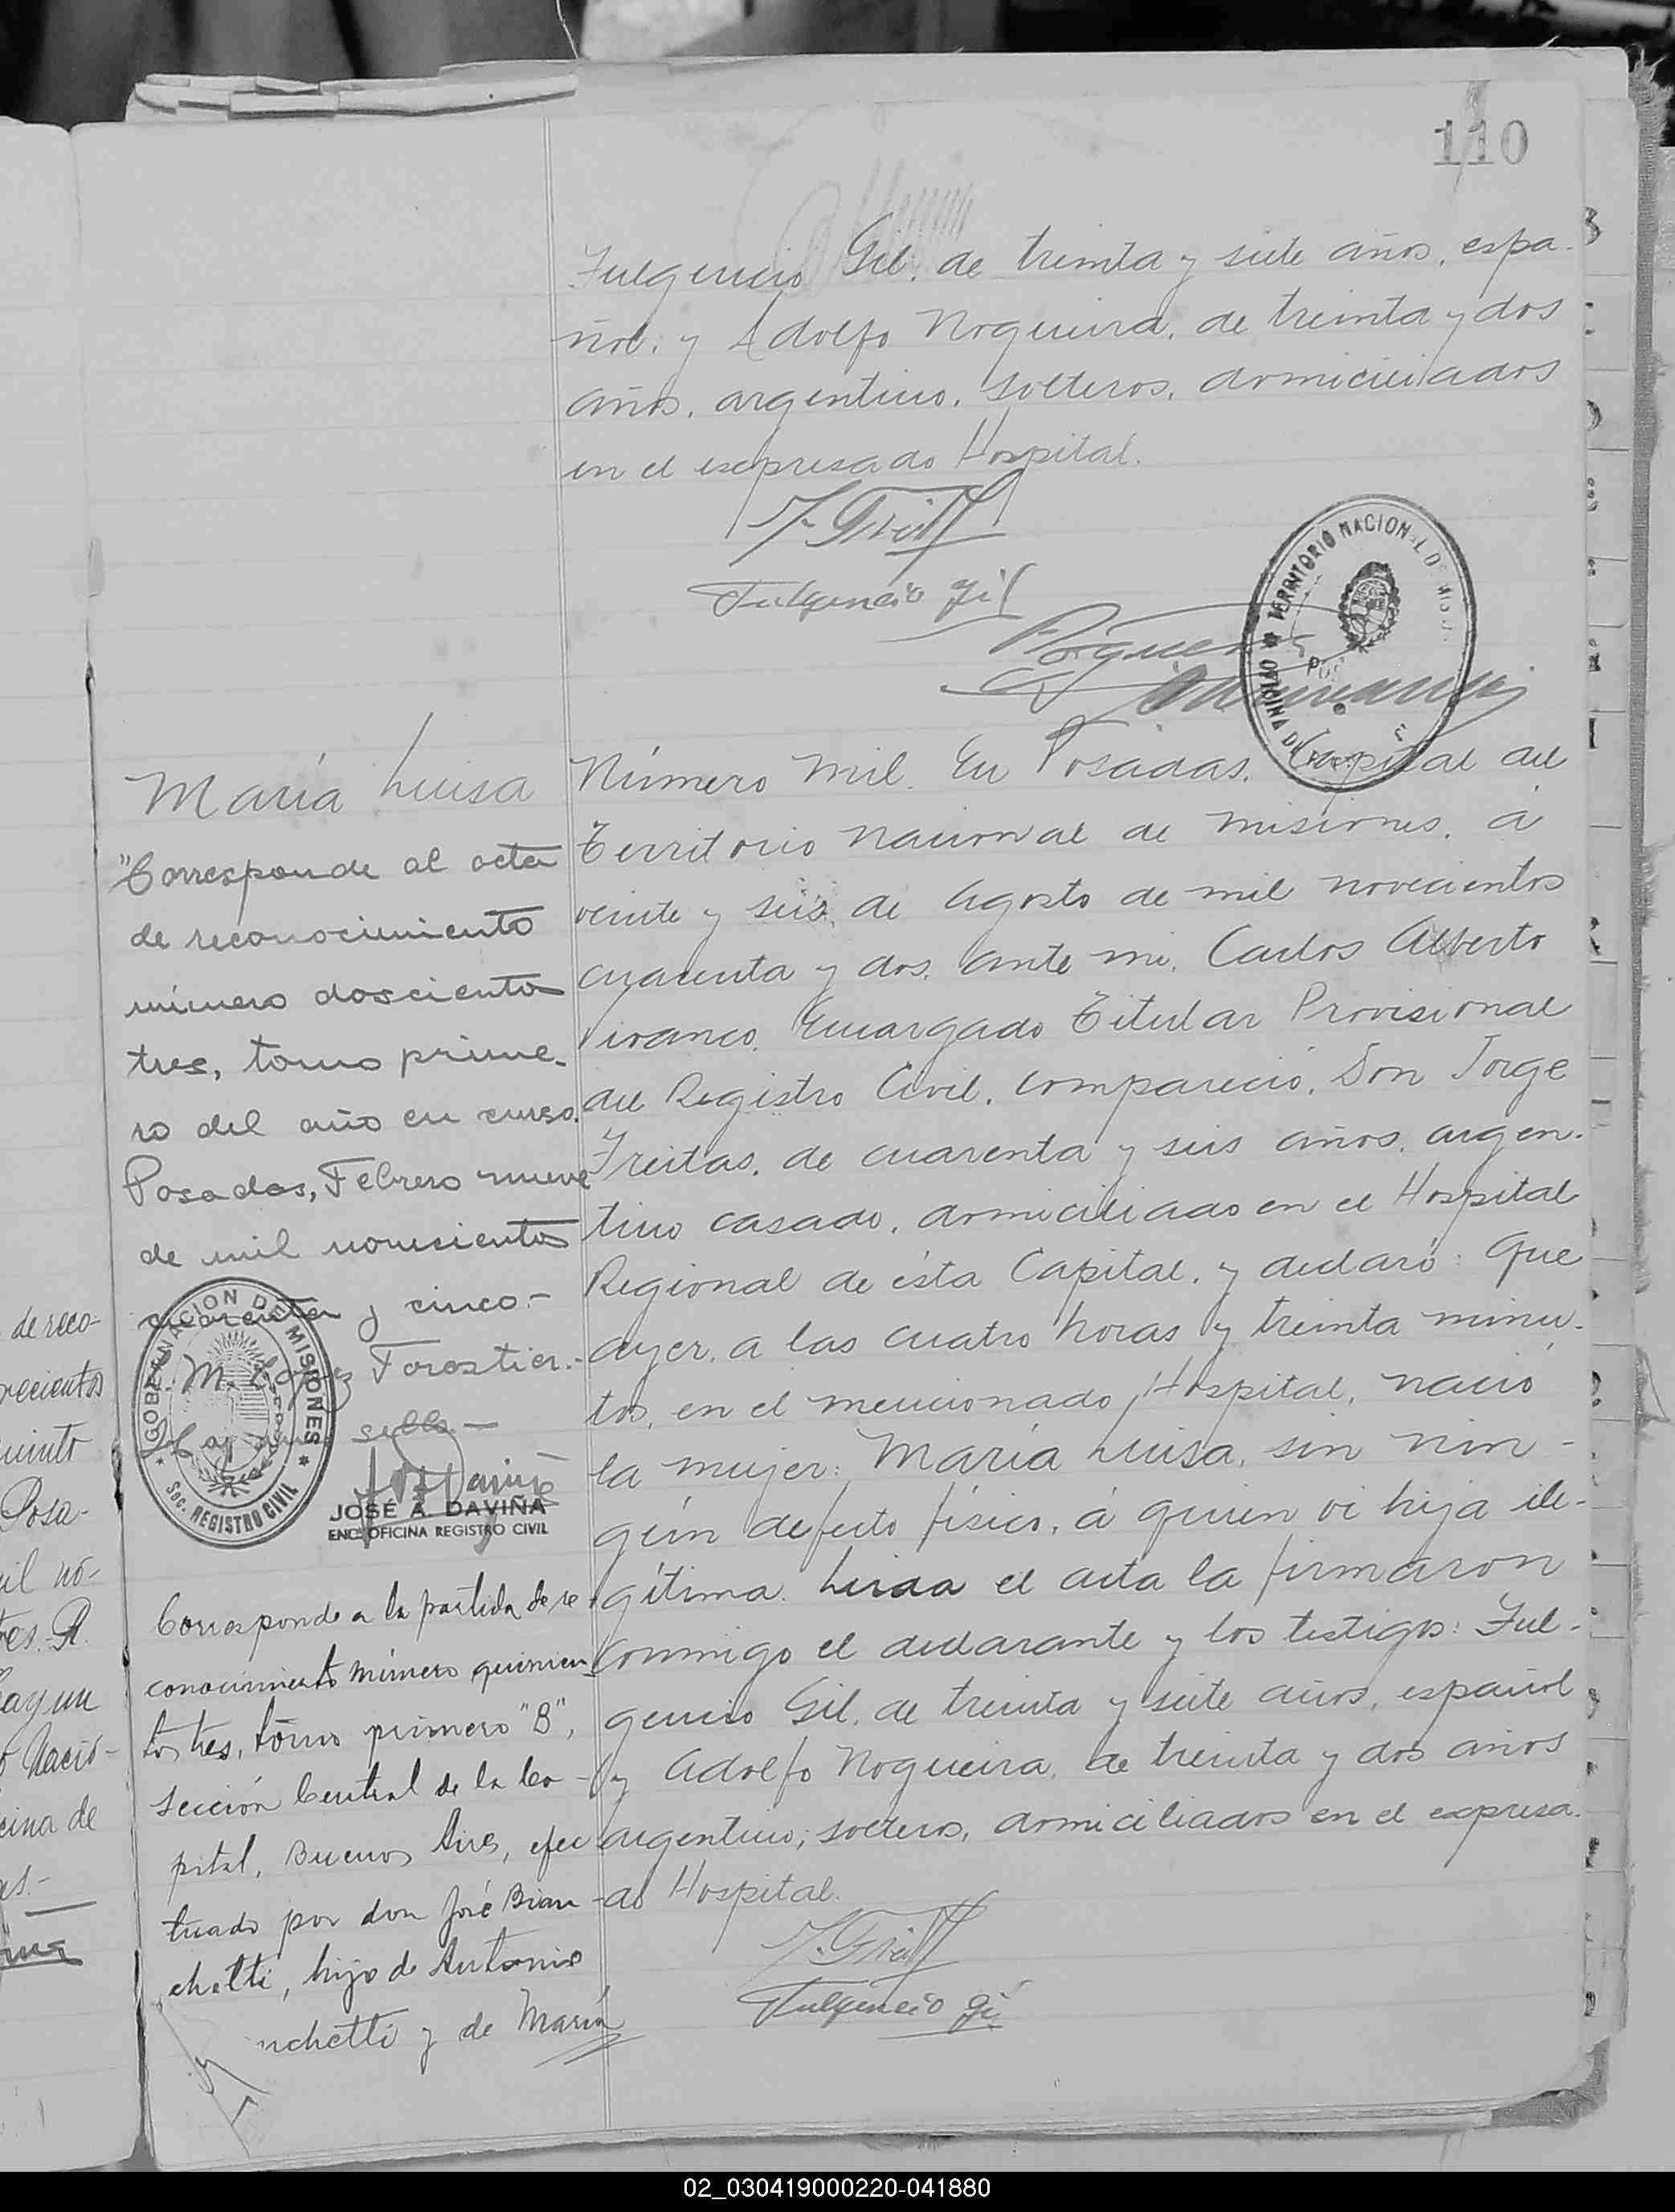 110
Fulgencio Gil, de treinta y siete años, espa-
ñol, y Adolfo Nogueira, de treinta y dos
años, argentino, solteros, domiciliados
en el expresado Hospital.
Fulgencio Gil
TERRITORIO NACIONAL DE
OFICINA DE
María Luisa
"Corresponde al acta
de reconocimiento
número doscientos
tres, tomo prime-
ro del año en curso.
Posadas, Febrero nueve
de mil novecientos
cuarenta y cinco.-
M. López Forastier.-
Hay un sello.-
GOBERNACION DE MISIONES
Sec. REGISTRO CIVIL
JOSÉ A. DAVIÑA
ENC. OFICINA REGISTRO CIVIL
Corresponde a la partida de re
conocimiento número quinien
tos tres, tomo primero "B",
sección Central de la Ca-
pital, Buenos Aires, efec
tuado por don José Bian
chetti, hijo de Antonio
nchetti y de María
Número mil. En Posadas, Capital del
Territorio Nacional de Misiones, á
veinte y seis de Agosto de mil novecientos
cuarenta y dos, ante mi, Carlos Alberto
Vivanco, Encargado Titular Provisional
del Registro Civil, compareció, Don Jorge
Freitas, de cuarenta y seis años, argen-
tino casado, domiciliado en el Hospital
Regional de ésta Capital, y declaró: Que
ayer, a las cuatro horas y treinta minu-
tos, en el mencionado Hospital, nació
la mujer: María Luisa, sin nin-
gún defecto físico, á quien vi hija ile-
gítima. Leida el acta la firmaron
conmigo el declarante y los testigos: Ful-
gencio Gil, de treinta y siete años, español
y Adolfo Nogueira, de treinta y dos años
argentino; solteros, domiciliados en el expresa-
do Hospital.
Fulgencio Gil
de reco-
Posa-
il no-
ay un
Nació-
cina de
02_030419000220-041880